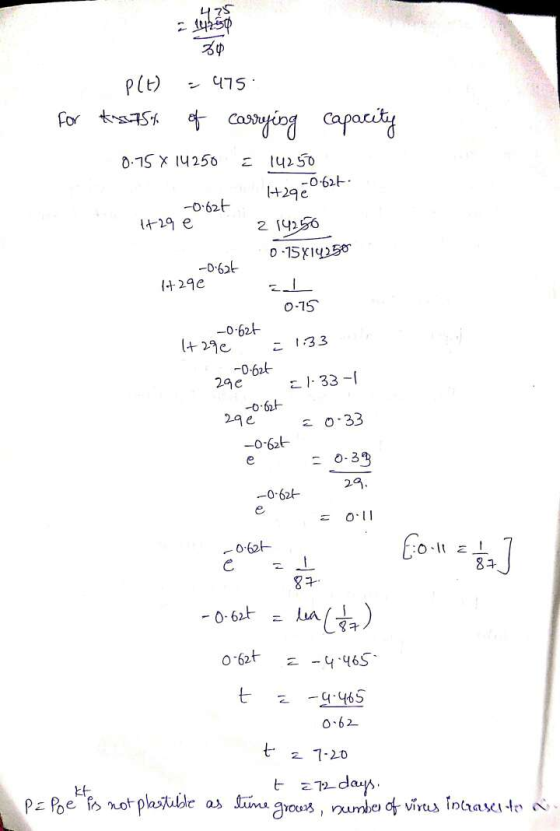 475
= 14250
30
P(t) = 475.
For t=75% of carrying capacity
0.75 X 14250 = 14250
1+29e^-0.62t.
1+29 e^-0.62t = 14250
0.75X14250
1+29e^-0.62t = 1
0.75
1+29e^-0.62t = 1.33
29e^-0.62t = 1.33-1
29e^-0.62t = 0.33
e^-0.62t = 0.33
29.
e^-0.62t = 0.11
e^-0.62t = 1 [∵0.11 = 1/87]
87
-0.62t = ln(1/87)
0.62t = -4.465
t = -4.465
0.62
t = 7.20
t = 72 days.
P= P0e^kt is not as time grows, number of virus increases to ∞.